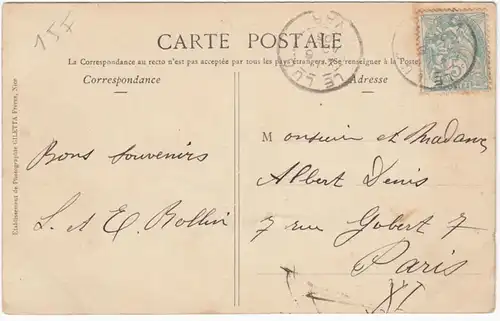 15F
CARTE POSTALE
La Correspondance au recto n'est pas acceptée par tous les pays étrangers. Se renseigner à la Poste.
Correspondance
Adresse
LE LUC
VAR
Bons souvenirs
L. et E. Rollin
Monsieur et Madame
Albert Denis
7 rue Gobert 7
Paris
XI
Etablissement de Photographie GILETTA Frères, Nice